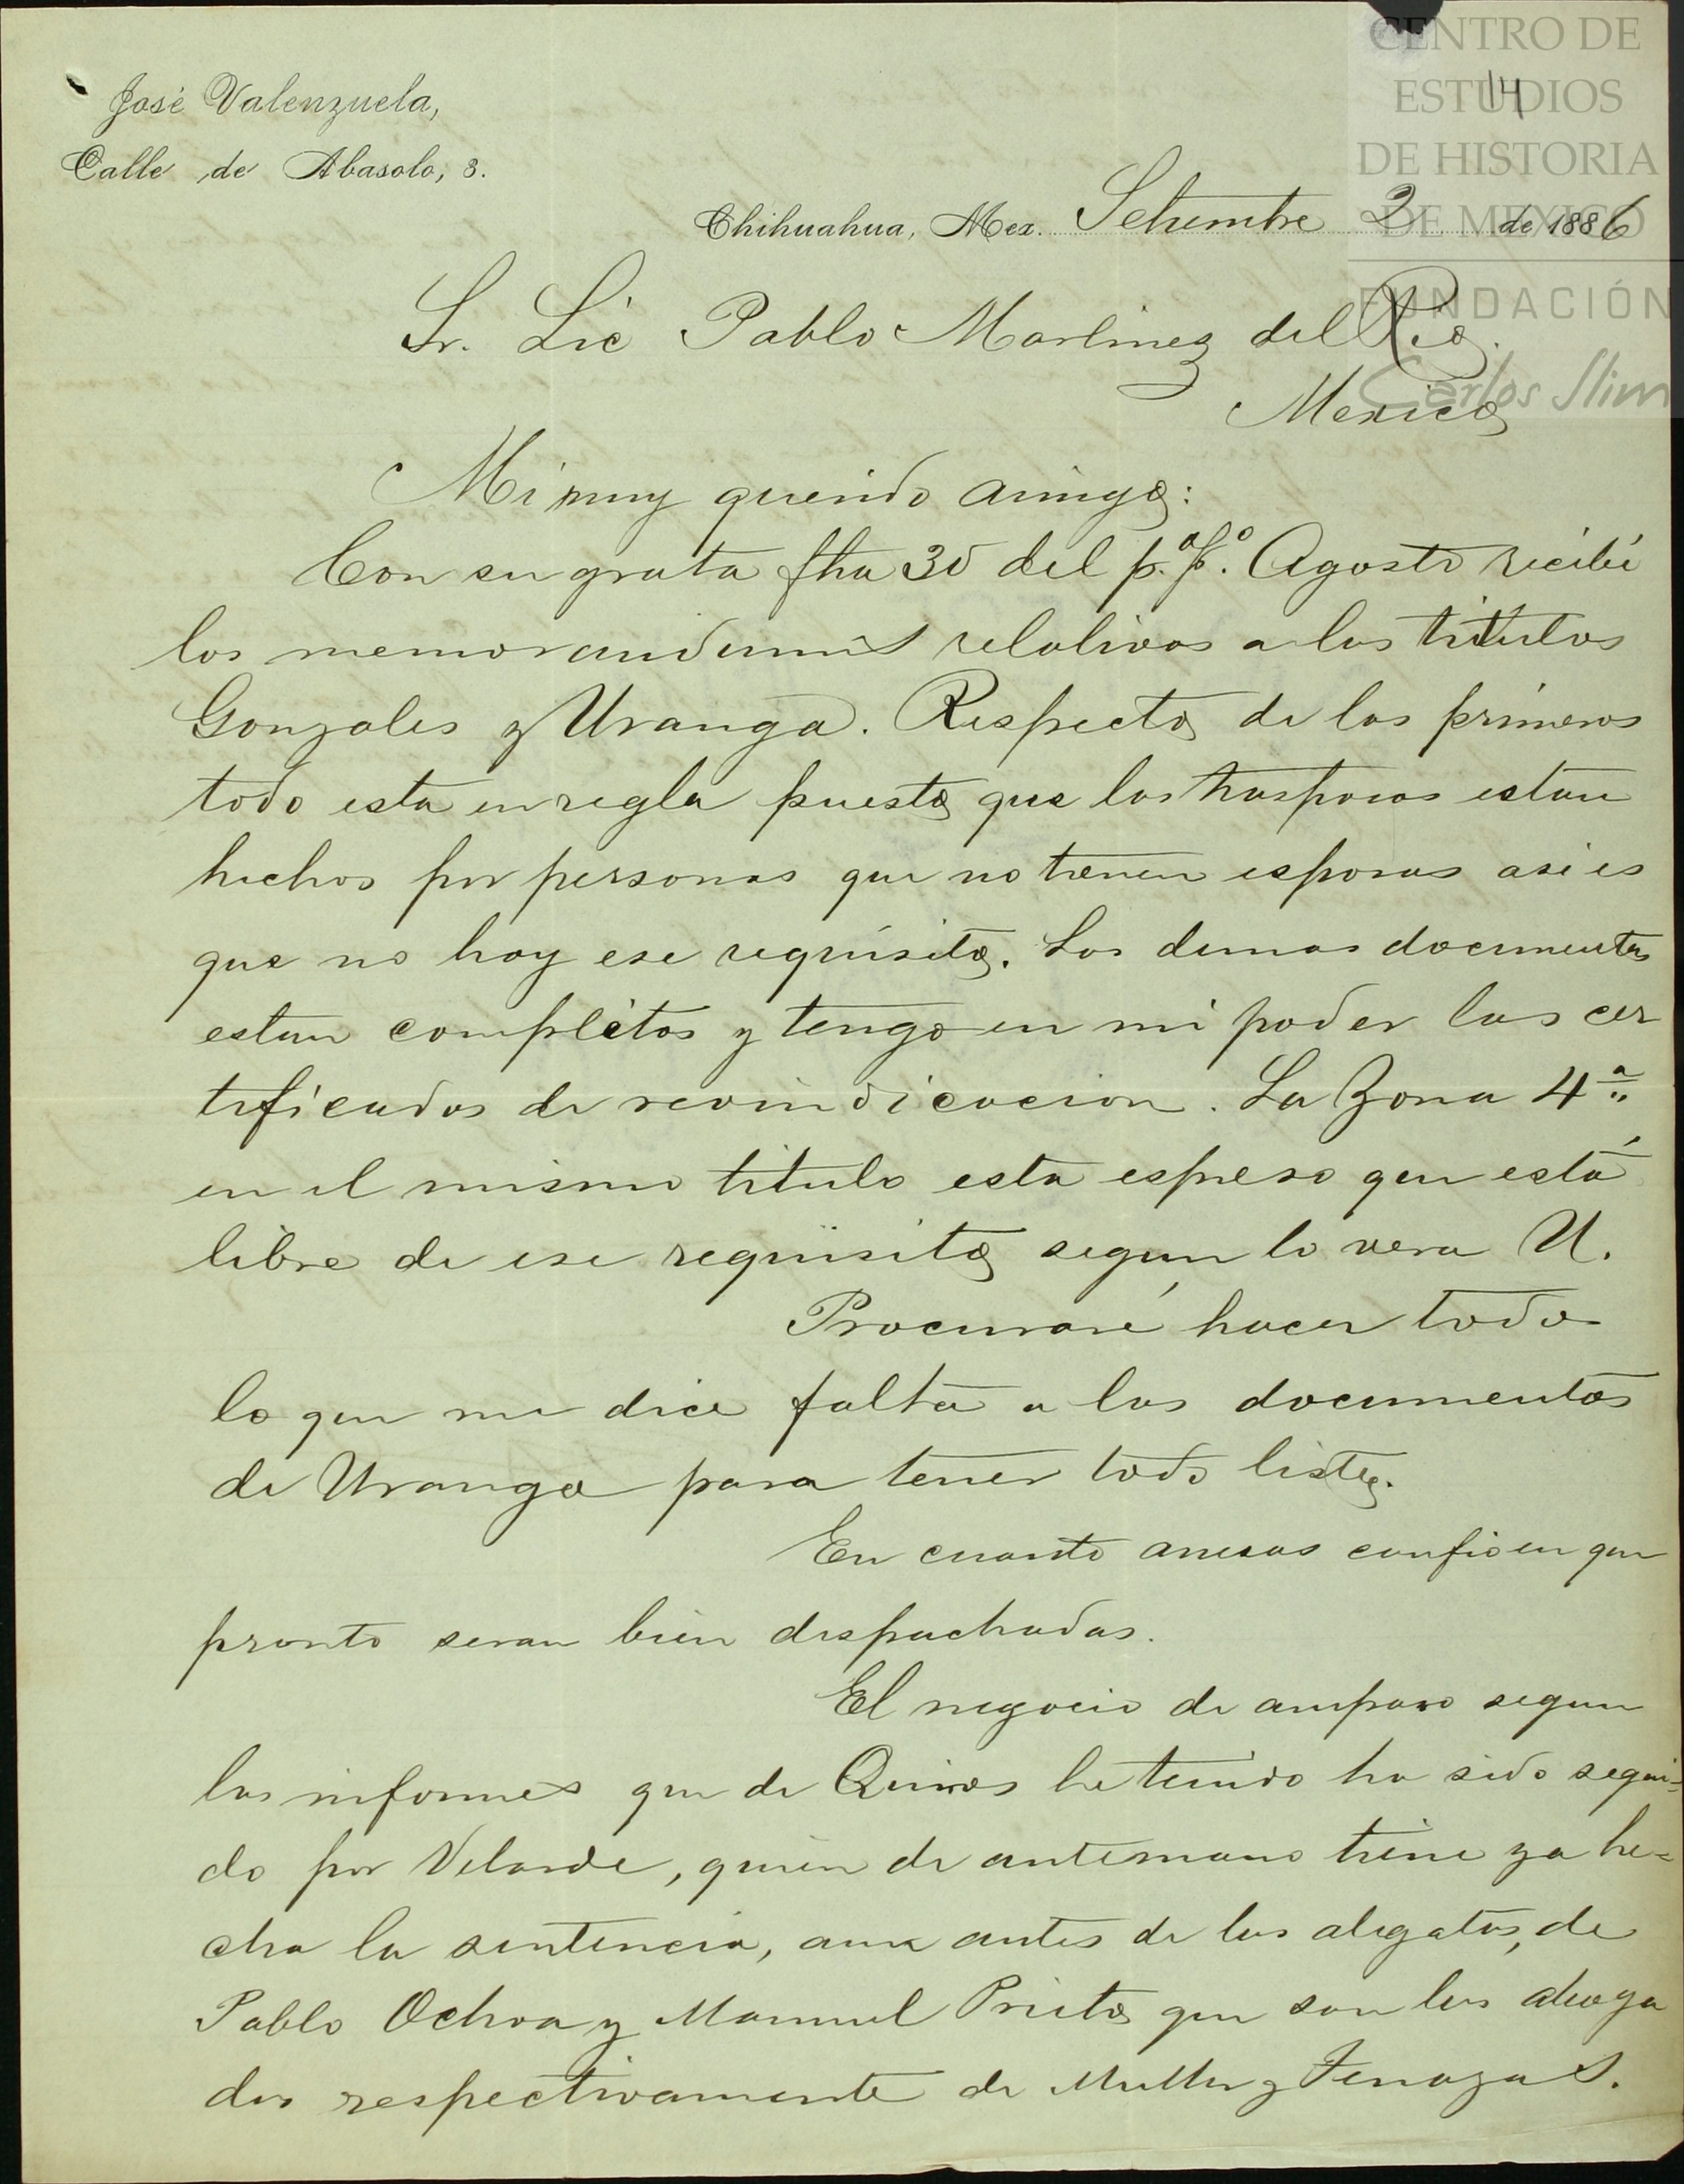 CENTRO DE
ESTUDIOS
DE HISTORIA
DE MEXICO
FUNDACIÓN
Carlos Slim
14
José Valenzuela,
Calle de Abasolo, 3.
Chihuahua, Mex. Setiembre 2 de 1886
Sr. Lic Pablo Martinez del Rio.
Mexico
Mi muy querido amigo:
Con su grata fha 30 del p.º p.º Agosto recibí
los memorandums relativos a los titulos
Gonzales y Uranga. Respecto de los primeros
todo esta en regla puesto que los trasposos estan
hechos por personas que no tienen esposas asi es
que no hay ese requisito. Los demas documentos
estan completos y tengo en mi poder los cer
tificados de revindicacion. La Zona 4ª
en el mismo titulo esta espreso que está
libre de ese requisito segun lo vera U.
Procuraré hacer todo
lo que me dice falta a los documentos
de Uranga para tener todo listo.
En cuanto anesas confien que
pronto seran bien despachadas.
El negocio de amparo segun
los informes que de Quiros he tenido ha sido segui-
do por Velarde, quien de antemano tiene ya he-
cha la sentencia, aun antes de los alegatos, de
Pablo Ochoa y Manuel Prieto que son los aboga
dos respectivamente de Muller y Terrazas.